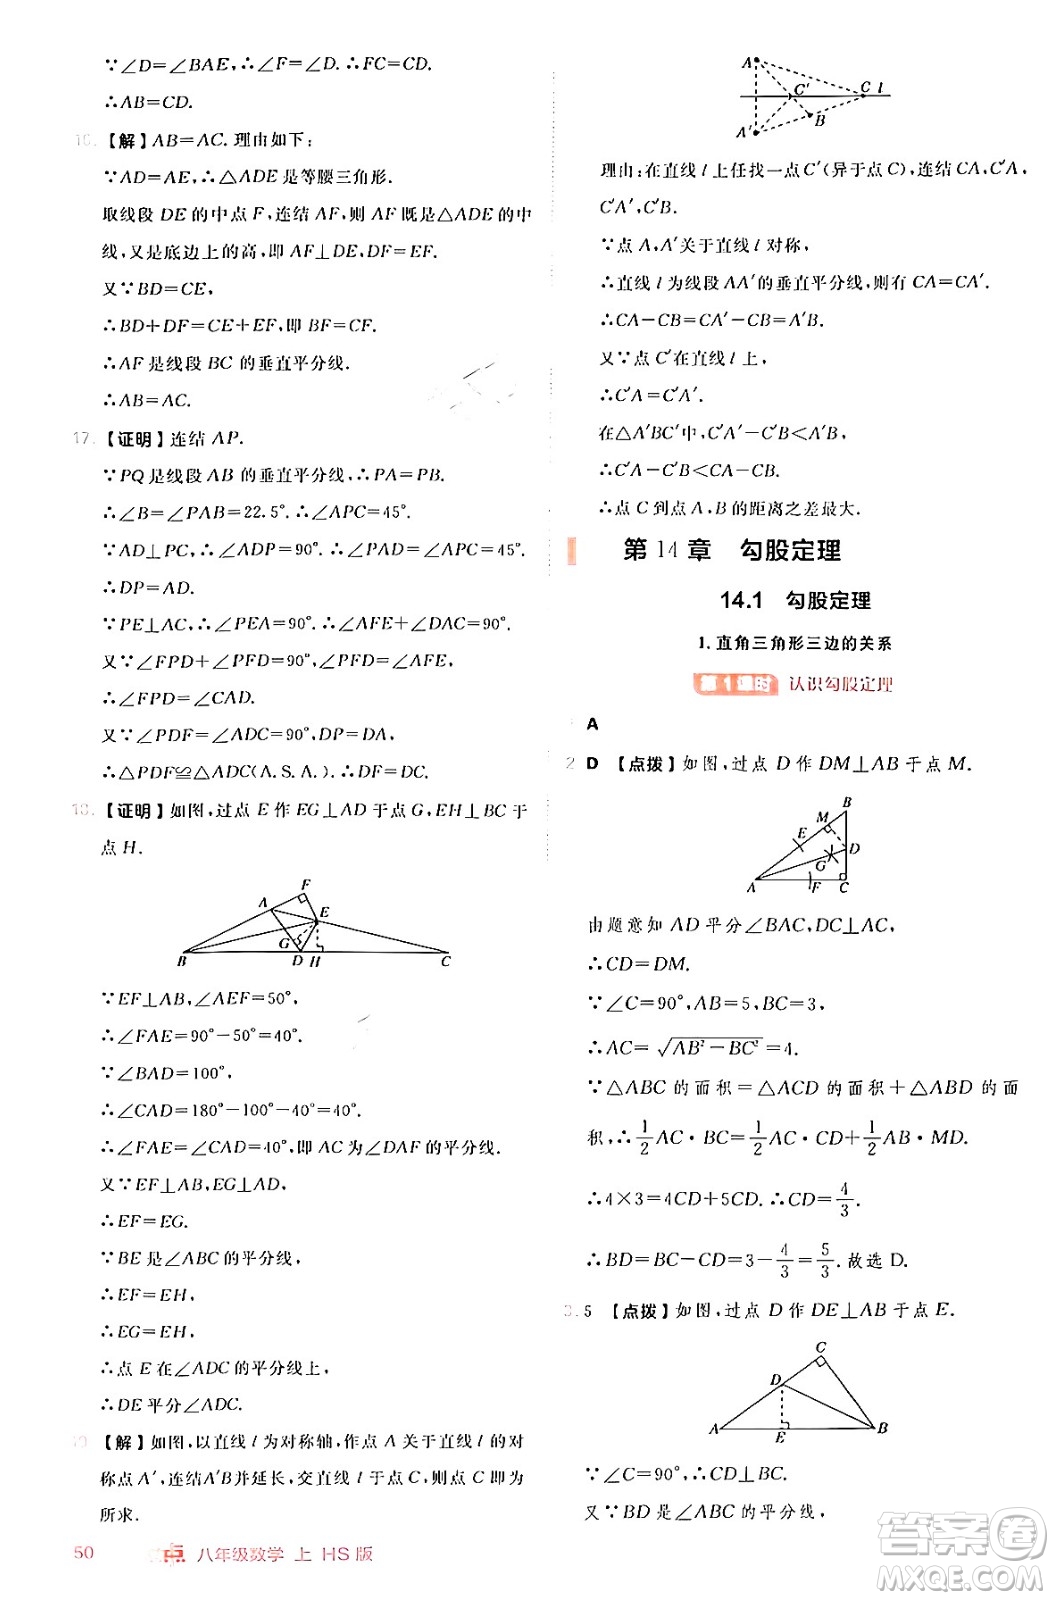 ∵∠D=∠BAE,∴∠F=∠D.∴FC=CD.
∴AB=CD.
16.【解】AB=AC.理由如下:
∵AD=AE,∴△ADE是等腰三角形.
取线段DE的中点F,连结AF,则AF既是△ADE的中
线,又是底边上的高,即AF⊥DE,DF=EF.
又∵BD=CE,
∴BD+DF=CE+EF,即BF=CF.
∴AF是线段BC的垂直平分线.
∴AB=AC.
17.【证明】连结AP.
∵PQ是线段AB的垂直平分线,∴PA=PB.
∴∠B=∠PAB=22.5°.∴∠APC=45°.
∵AD⊥PC,∴∠ADP=90°.∴∠PAD=∠APC=45°.
∴DP=DA.
∵PE⊥AC,∴∠PEA=90°=∠ADP.
又∵∠FPD+∠PFD=90°,∠PEA=90°,
∴∠FPD=∠CAD.
又∵∠PDF=∠ADC=90°,DP=DA,
∴△PDF≌△ADC(A.S.A.).∴DF=DC.
18.【证明】如图,过点E作EG⊥AD于点G,EH⊥BC于
点H.
F
A
E
G
B
D H
C
∵EF⊥AB,∠AEF=50°,
∴∠FAE=90°-50°=40°.
∵∠BAD=100°,
∴∠CAD=180°-100°-40°=40°.
∴∠FAE=∠CAD=40°,即AC为∠DAF的平分线.
又∵EF⊥AB,EG⊥AD,
∴EF=EG.
∵BE是∠ABC的平分线,
∴EF=EH,
∴EG=EH,
∴点E在∠ADC的平分线上,
∴DE平分∠ADC.
19.【解】如图,以直线l为对称轴,作点A关于直线l的对
称点A′,连结A′B并延长,交直线l于点C,则点C即为
所求.
50
点 八年级数学 上 HS版
A
C′
C l
B
A′
理由:在直线l上任找一点C′(异于点C),连结CA,C′A,
C′A′,C′B.
∵点A,A′关于直线l对称,
∴直线l为线段AA′的垂直平分线,则有CA=CA′.
∴CA-CB=CA′-CB=A′B.
又∵点C′在直线l上,
∴C′A=C′A′.
在△A′BC′中,C′A′-C′B<A′B,
∴C′A-C′B<CA-CB.
∴点C到点A,B的距离之差最大.
第14章 勾股定理
14.1 勾股定理
1.直角三角形三边的关系
第1课时 认识勾股定理
A
2 D 【点拨】如图,过点D作DM⊥AB于点M.
B
M
E
D
G
A
F
C
由题意知AD平分∠BAC,DC⊥AC,
∴CD=DM.
∵∠C=90°,AB=5,BC=3,
∴AC=√(AB²-BC²)=4.
∵△ABC的面积=△ACD的面积+△ABD的面
积,∴1/2 AC·BC=1/2 AC·CD+1/2 AB·MD.
∴4×3=4CD+5CD.∴CD=4/3.
∴BD=BC-CD=3-4/3=5/3.故选D.
3.5 【点拨】如图,过点D作DE⊥AB于点E.
C
D
A
E
B
∵∠C=90°,∴CD⊥BC.
又∵BD是∠ABC的平分线,
答案圈
MXQE.COM